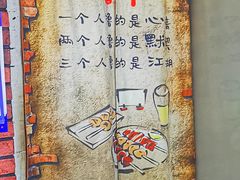 一个人撸的是心情
两个人撸的是默契
三个人撸的是江湖